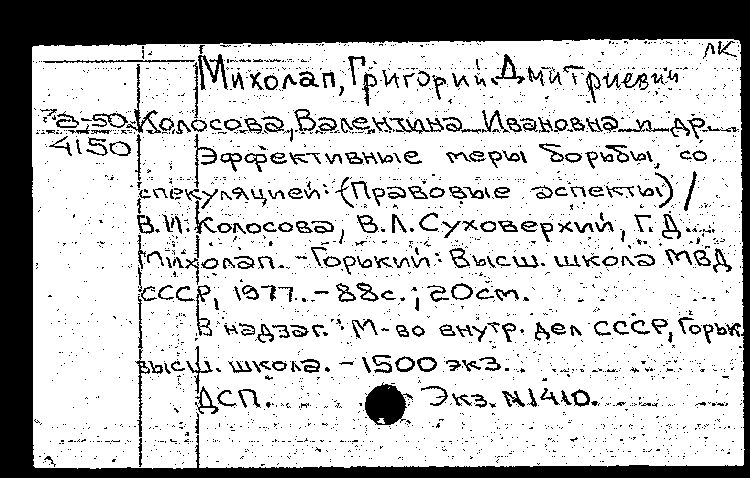 ЛК
Михолап, Григорий Дмитриевич
78-50 Колосова, Валентина Ивановна и др.
4150 Эффективные меры борьбы со
спекуляцией: (Правовые аспекты) /
В.И. Колосова, В.Л. Суховерхий, Г.Д.
Михолап. - Горький: Высш. школа МВД
СССР, 1977. - 88с.; 20см.
В надзаг.: М-во внутр. дел СССР, Горьк.
высш. школа. - 1500 экз.
ДСП. Экз. N1410.